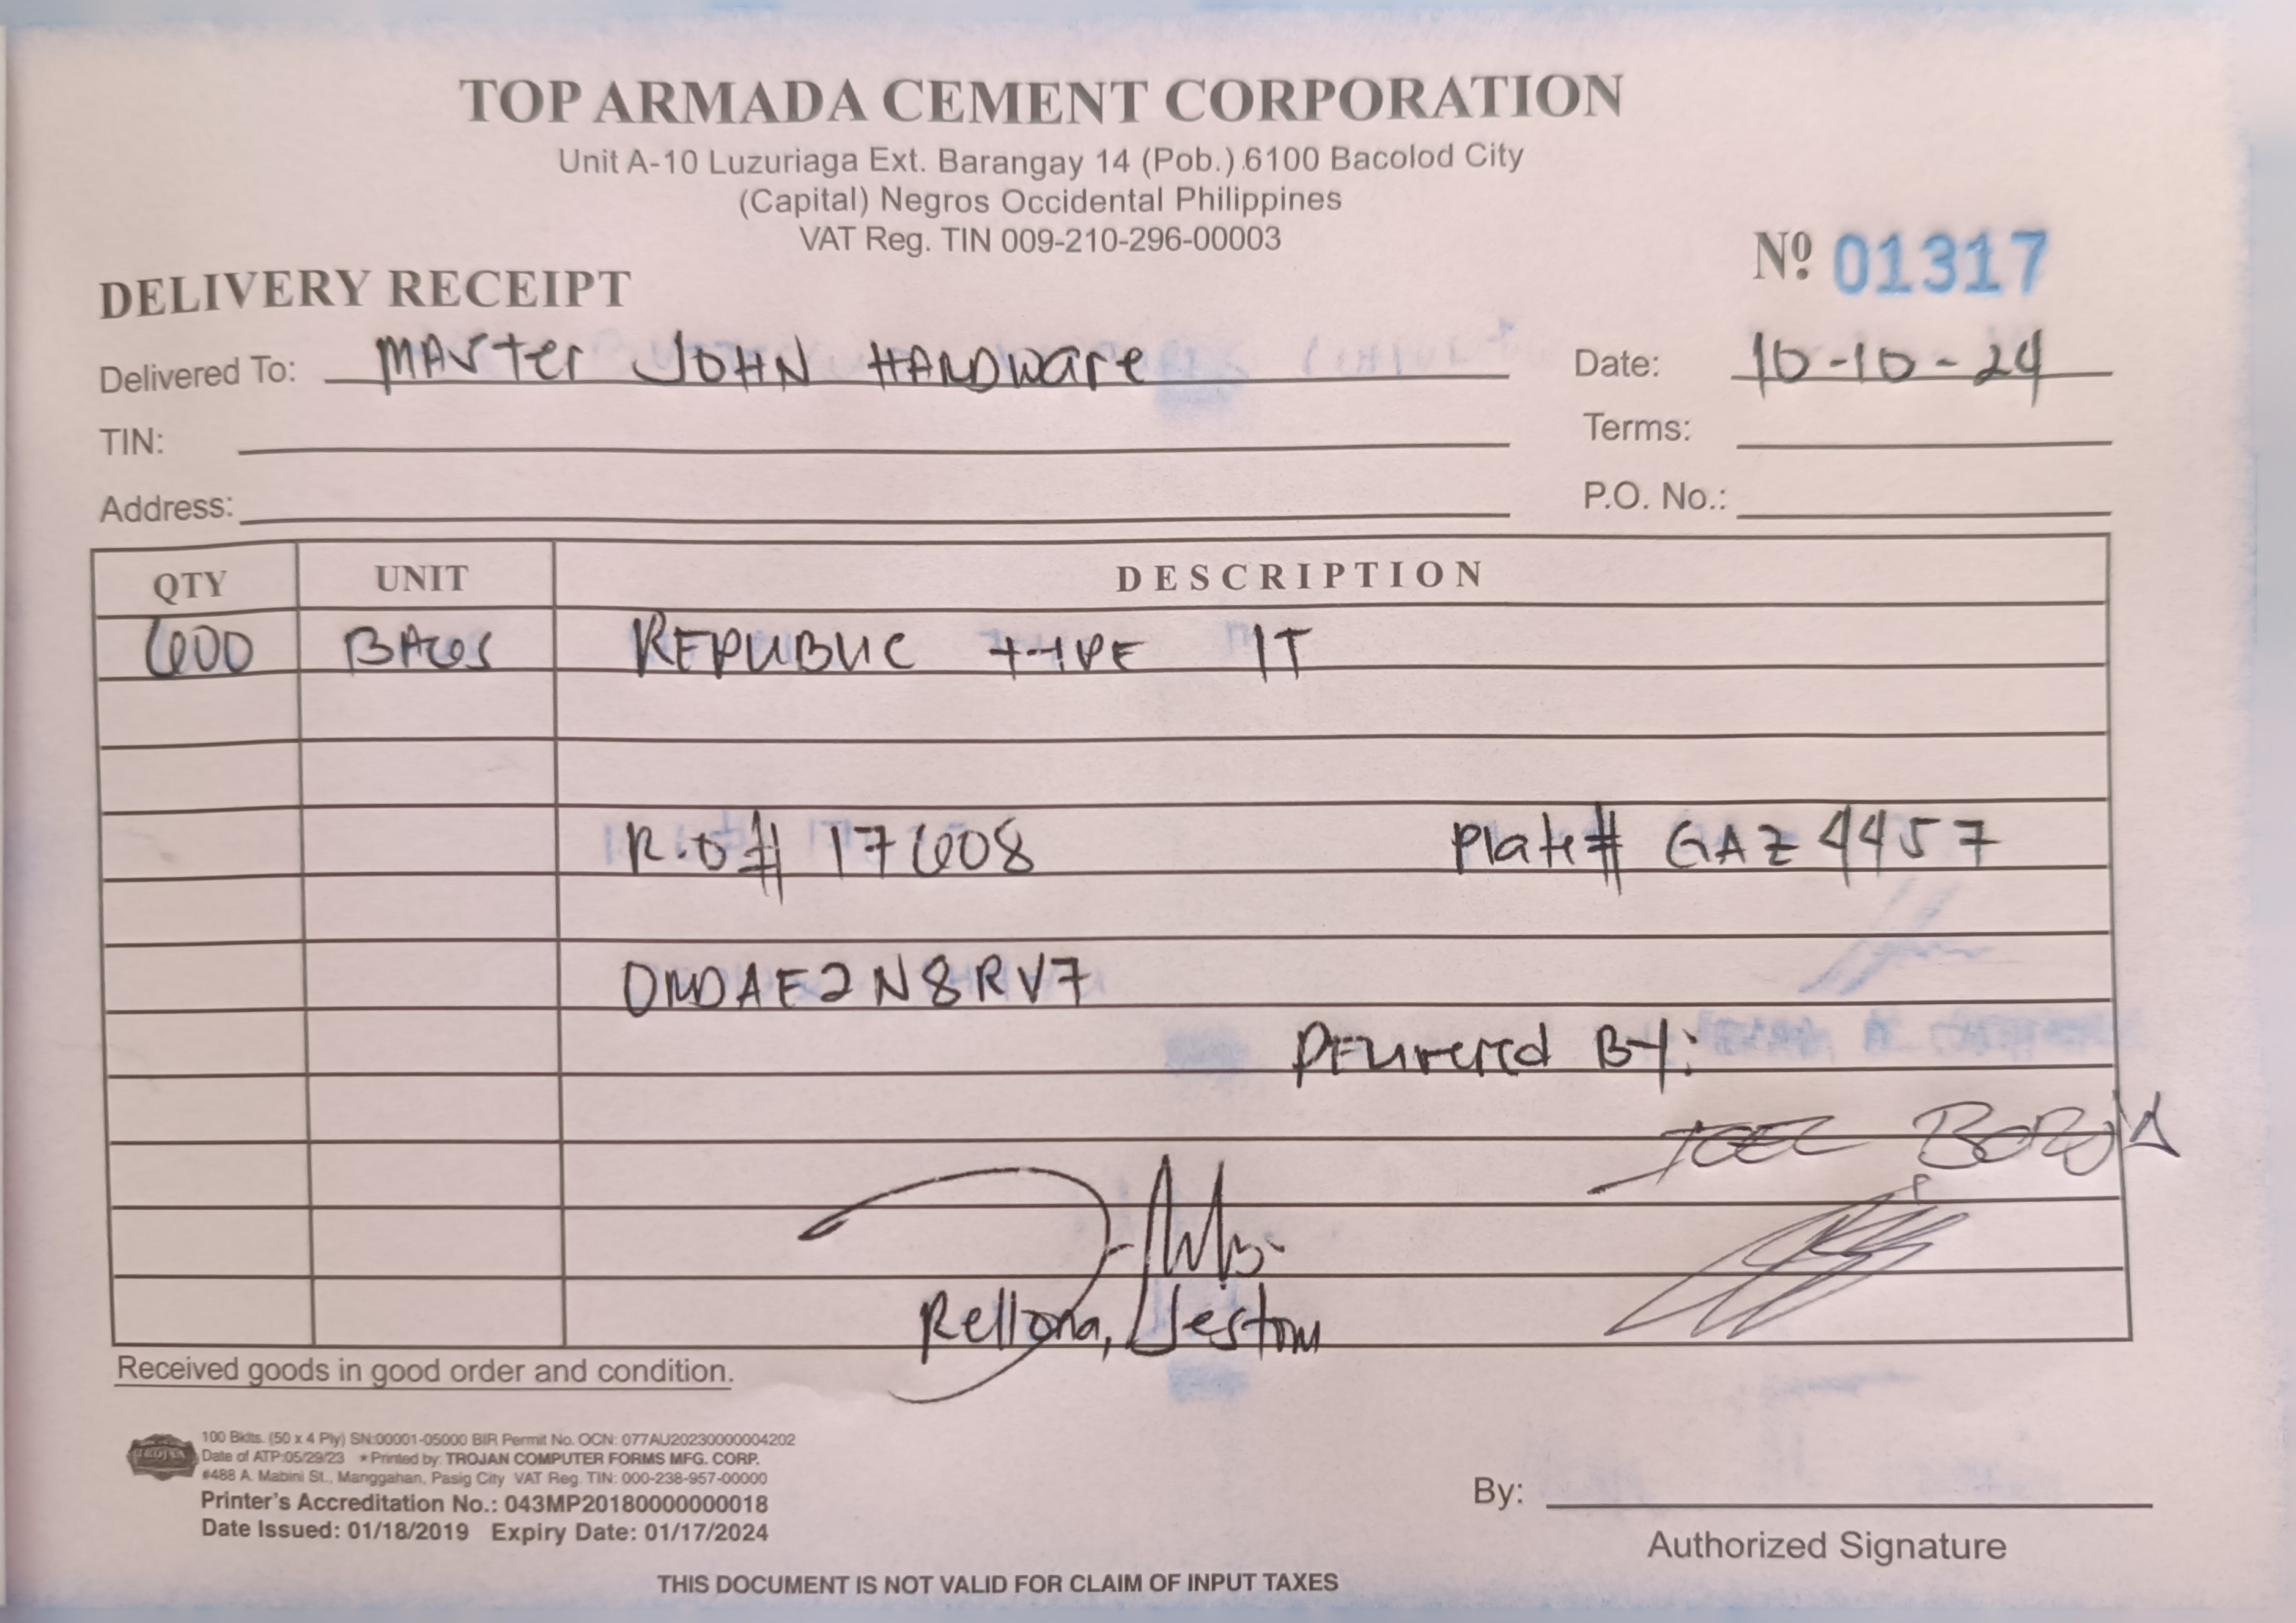 TOP ARMADA CEMENT CORPORATION
Unit A-10 Luzuriaga Ext. Barangay 14 (Pob.) 6100 Bacolod City
(Capital) Negros Occidental Philippines
VAT Reg. TIN 009-210-296-00003
Nº 01317
DELIVERY RECEIPT
Delivered To: MASTER JOHN HARDWARE Date: 10-10-24
TIN: Terms:
Address: P.O. No.:
QTY UNIT DESCRIPTION
600 BAGS REPUBLIC TYPE 1T
R.O# 17608 Plate# GAZ 4457
DMDAE2N8RV7
Delivered By:
JOEL BORJA
Rellona, Jestoni
Received goods in good order and condition.
100 Bklts. (50 x 4 Ply) SN:00001-05000 BIR Permit No. OCN: 077AU20230000004202
Date of ATP:05/29/23 ★Printed by: TROJAN COMPUTER FORMS MFG. CORP.
#488 A. Mabini St., Manggahan, Pasig City VAT Reg. TIN: 000-238-957-00000
Printer's Accreditation No.: 043MP20180000000018
Date Issued: 01/18/2019 Expiry Date: 01/17/2024
By:
Authorized Signature
THIS DOCUMENT IS NOT VALID FOR CLAIM OF INPUT TAXES